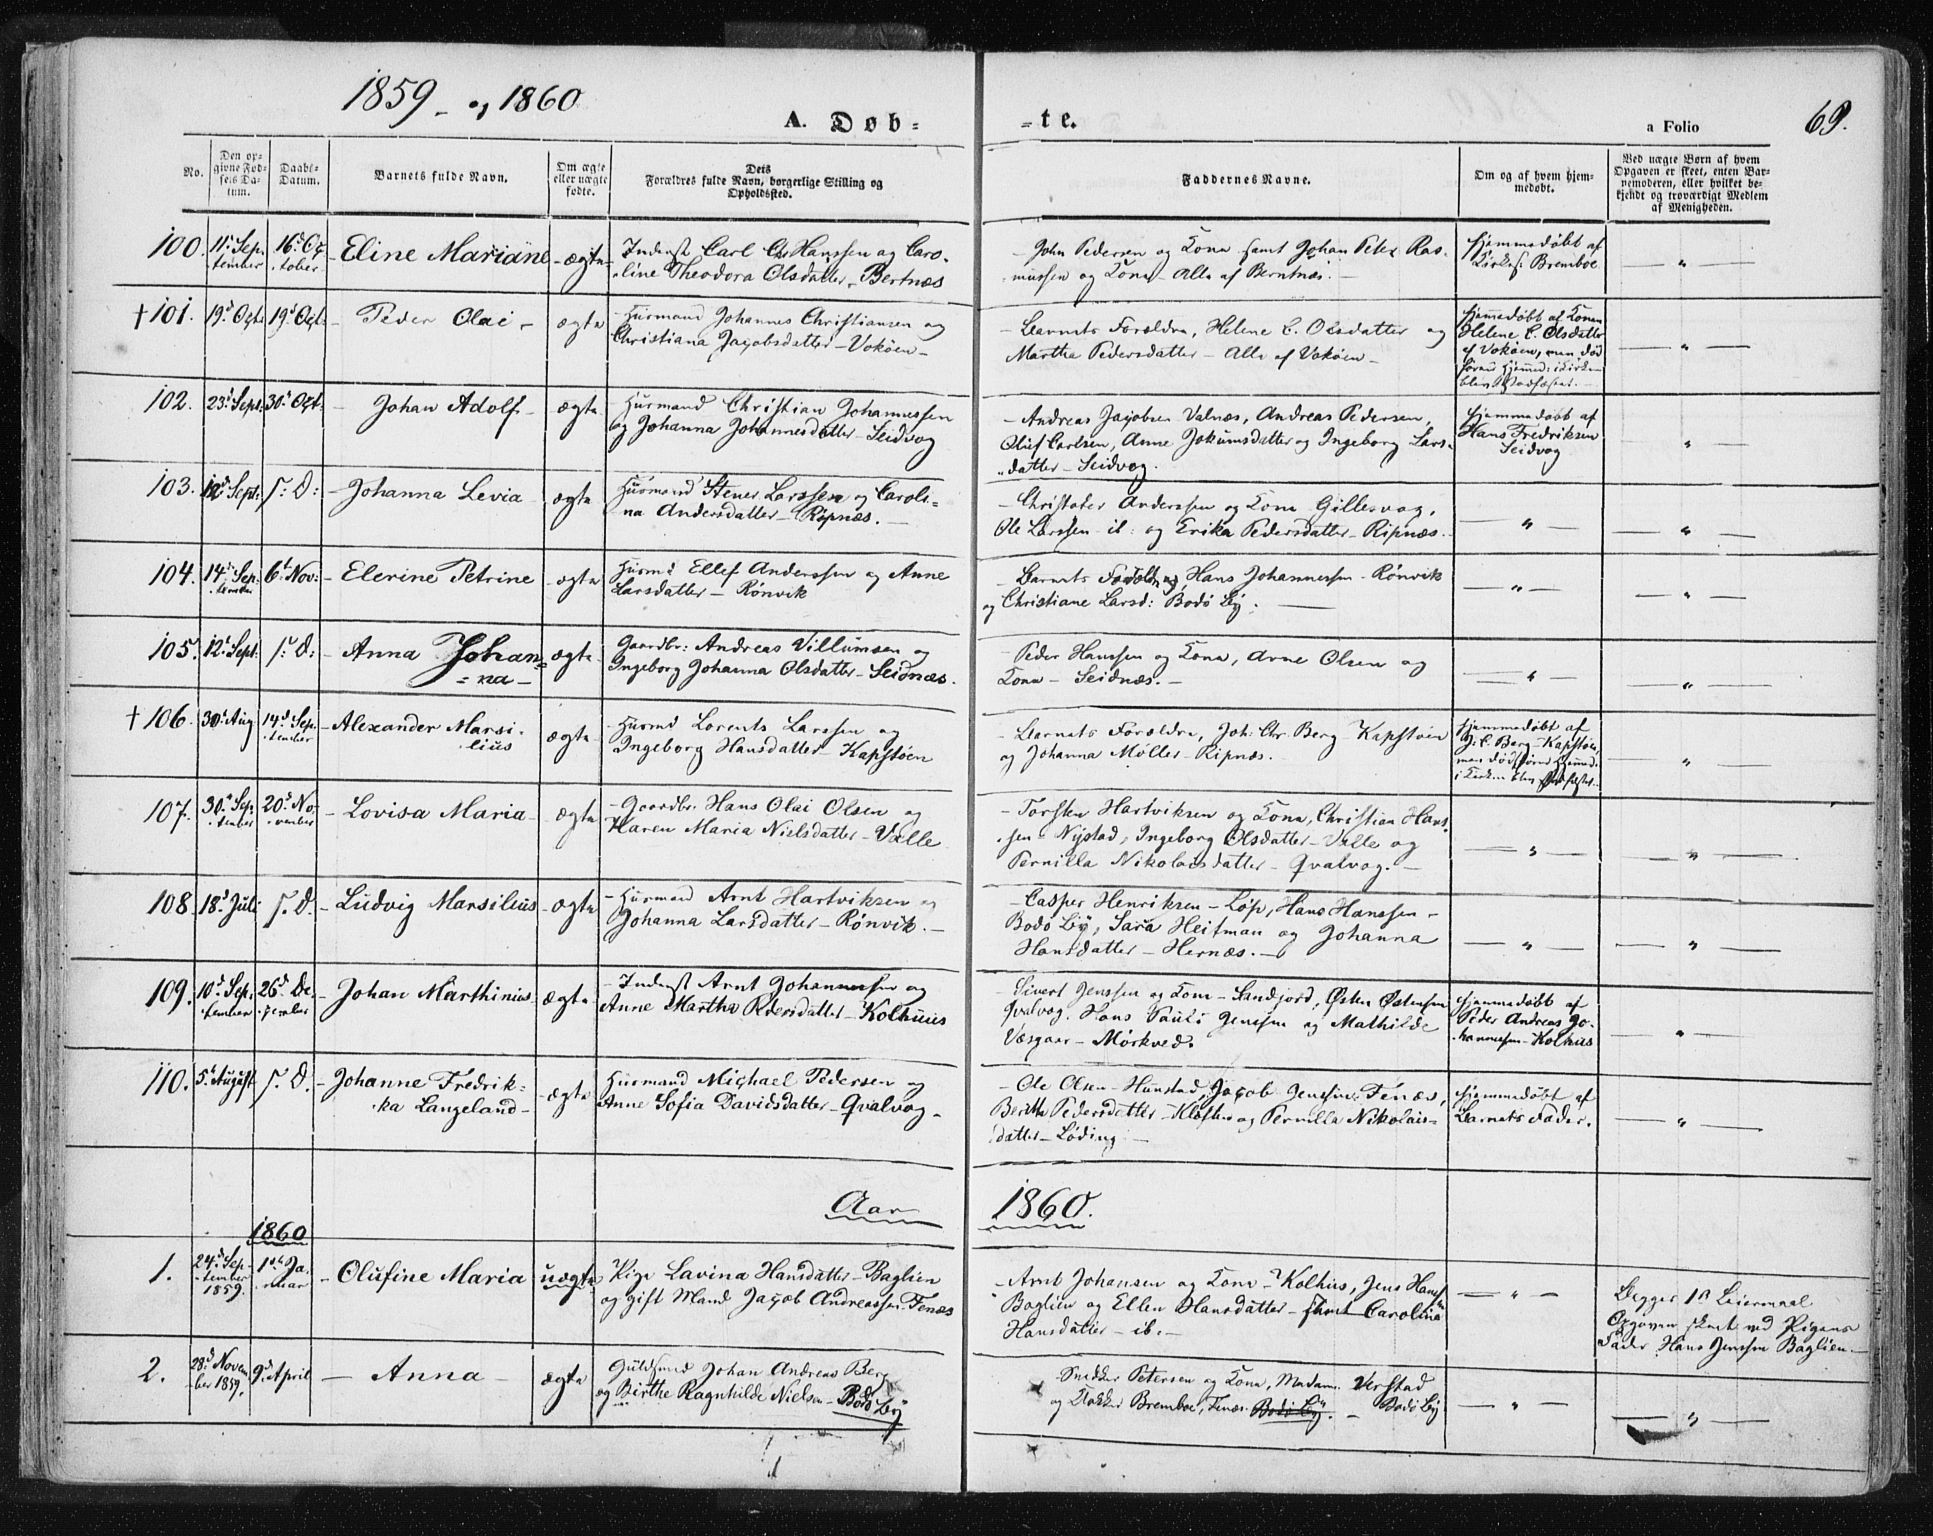 1859 - og 1860
A. Døb-
-te.
a Folio
69.
No.
Den op-
givne Fød-
sels Da-
tum.
Daabs-
Datum.
Barnets fulde Navn.
Om ægte
eller uægte
fødte.
Dets
Forældres fulde Navn, borgerlige Stilling og
Opholdssted.
Faddernes Navne.
Om og af hvem hjem-
medøbt.
Ved uægte Børn af hvem
Opgaven er skeet, enten Bar-
nemoderen, eller hvilket be-
kjendt og troværdigt Medlem
af Menigheden.
100. 11te Sep-
tember
16d Oc-
tober
Eline Mariane
ægte
Inderst Carl Chr Hanssen og Caro-
line Theodora Olsdatter - Bertnæs
John Pedersen og Kone samt Johan Peter Ras-
mussen og Kone - Alle af Berntnæs. -
Hjemmedøbt af
Kirkes: Bremboe
— „ —
† 101. 19d Oct: 19d Oct: - Peder Olai -
ægte
Huusmand Johannes Christiansen og
Christiana Jacobsdatter - Vokøen -
- Barnets Forældre, Helene C. Olsdatter og
Martha Pedersdatter - Alle af Vokøen -
Hjemmedøbt af Konen
Helene C. Olsdatter
af Vokøen, men død
førend Hjemmed: i Kirken
blev stadfæstet. -
— „ —
102. 23d Sept: 30d Oct: - Johan Adolf -
ægte
Huusmand Christian Johannessen
og Johanna Johannesdatter - Seidvog
- Andreas Jacobsen Valnæs, Andreas Pedersen,
Oluf Carlsen, Anne Jokumsdatter og Ingeborg Lars-
datter - Seidvog.
Hjemmedøbt af
Hans Fredriksen
Seidvog
— „ —
103. 12d Sept: s: D: - Johanna Levia - ægte
Huusmand Stener Larssen og Caroli-
na Andersdatter - Ripnæs. -
- Christofer Anderssen og Kone Gillesvog,
Ole Larssen - ib: og Erika Pedersdatter - Ripnæs. -
— „ —
— „ —
104. 14d Sep-
tember
6te Nov: - Elerine Petrine
ægte
Huusmd Ellef Anderssen og Anne
Larsdatter - Rønvik
- Barnets Forældre, Hans Johannessen - Rønvik
og Christiane Larsd: Bodø By. —
— „ —
— „ —
105. 12te Sept: s: D: - Anna Johan-
na -
ægte
Gaardbr: Andreas Villumsen og
Ingeborg Johanna Olsdatter - Seidnæs.
- Peder Hanssen og Kone, Arne Olsen og
Kone - Seidnæs. -
— „ —
— „ —
† 106. 30d Aug 14d Sep-
tember
- Alexander Marsi-
lius
ægte
Huusmd Lorents Larssen og
Ingeborg Hansdatter - Kapstøen
- Barnets Forældre, Joh: Chr. Berg - Kapstøen
og Johanna Møller - Ripnæs.
Hjemmedøbt af
J. C. Berg - Kapstøen,
men død førend Hjemmed.
i Kirken blev stadfæstet.
— „ —
107. 30d Sep-
tember
20d No-
vember
- Lovisa Maria -
ægte
- Gaardbr. Hans Olai Olsen og
Karen Maria Nielsdatter - Valle
- Torsten Hartviksen og Kone, Christian Hans-
sen - Nystad, Ingeborg Olsdatter - Valle og
Pernilla Nikolaisdatter - Qvalvog. -
— „ —
— „ —
108. 18d Juli s. D. - Ludvig Marsilius -
ægte
- Huusmand Arnt Hartviksen og
Johanna Larsdatter - Rønvik. -
- Casper Henriksen - Løp, Hans Hanssen -
Bodø By, Sara Heitman og Johanna
Hansdatter - Hernæs. -
— „ —
— „ —
109. 10d Sep-
tember
26d De-
cember
- Johan Marthinius
ægte
- Inderst Arnt Johannessen og
Anne Martha Pedersdatter - Kolhuus
- Sivert Jenssen og Kone - Sandjord, Østen Østensen
Qvalvog, Hans Pauli Jenssen og Mathilde
Væsgaar - Mørkved.
Hjemmedøbt af
Peder Andreas Jo-
hannessen - Kolhus
— „ —
110. 5te August s. D. - Johanne Fredrik-
ka Langeland -
ægte
Huusmand Michael Pedersen og
Anne Sofia Davidsdatter - Qvalvog -
- Ole Olsen - Hunstad, Jacob Jenssen - Fenæs,
Beritha Pedersdatter - Kløften og Pernilla Nikolais-
datter - Løding. -
Hjemmedøbt af
Barnets Fader.
— „ —
Aar
1860.
1860
1. 24d Sep-
tember
1859.
1ste Ja-
nuar
- Olufine Maria
uægte
Pige Lavina Hansdatter - Baglien
og gift Mand Jacob Andreassen Fenæs
- Arnt Johansen og Kone - Kolhus, Jens Hans-
Baglien og Ellen Hansdatter - samt Carolina
Hansdatter - ib. -
— „ —
Begges 1s Leiermaal
Opgaven skeet ved Pigens
Fader Hans Jenssen Baglien. -
2. 28d Novem-
ber 1859.
9d April - Anna - ægte
Guldsmed Johan Andreas Berg
og Birthe Ragnhilde Nielsen - Bodø By
- Snekker Petersen og Kone, Madam Verstad
og Klokker Bremboe, Fenæs. Bodø By. - Bodø By
— „ —
— „ —